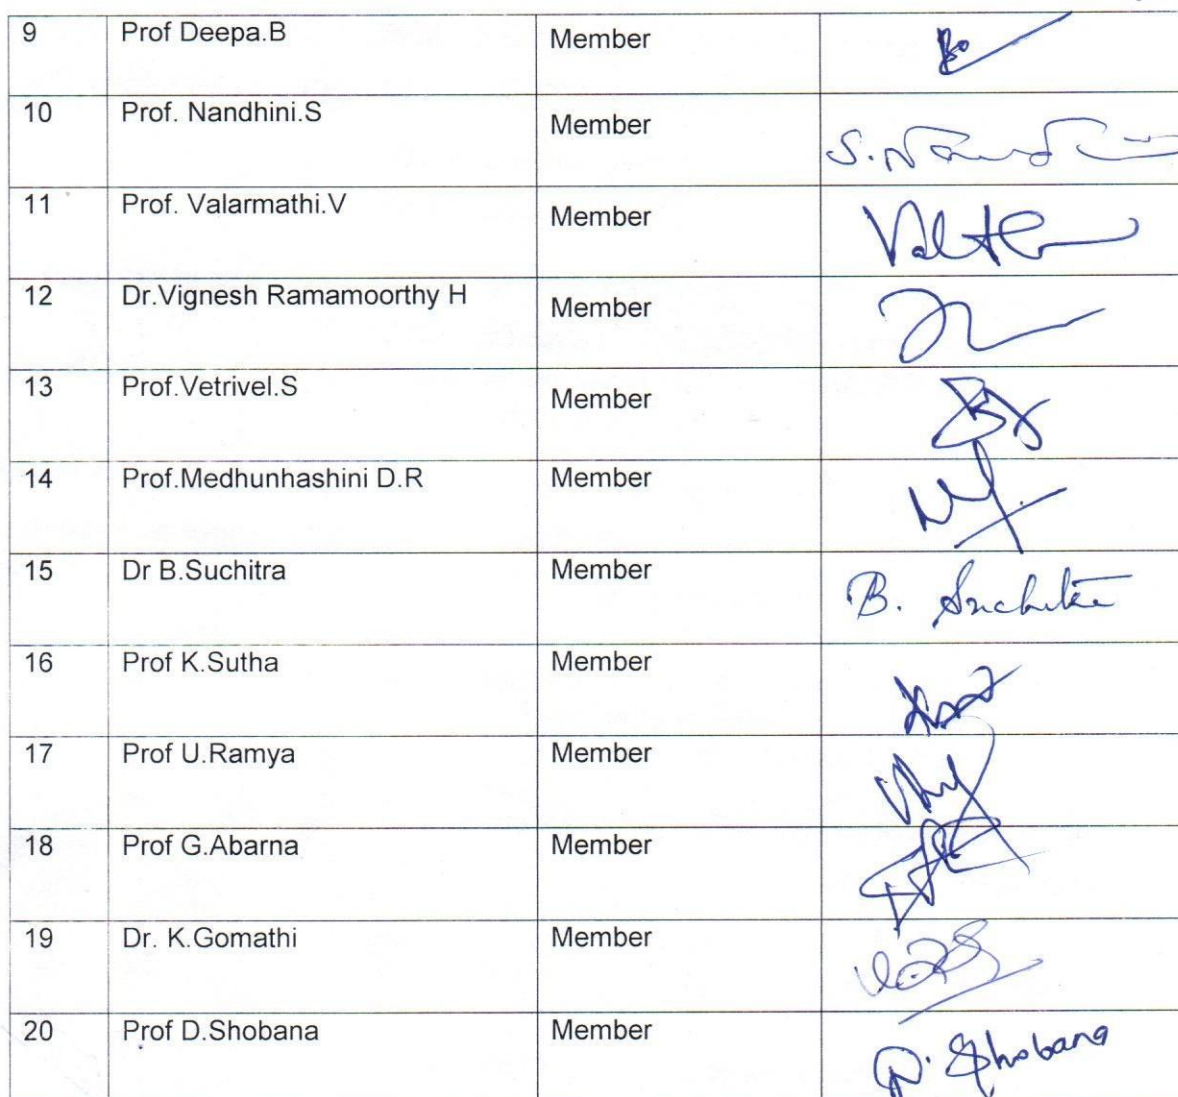 9 Prof Deepa.B Member
10 Prof. Nandhini.S Member
11 Prof. Valarmathi.V Member
12 Dr.Vignesh Ramamoorthy H Member
13 Prof.Vetrivel.S Member
14 Prof.Medhunhashini D.R Member
15 Dr B.Suchitra Member B. Suchitra
16 Prof K.Sutha Member
17 Prof U.Ramya Member
18 Prof G.Abarna Member
19 Dr. K.Gomathi Member
20 Prof D.Shobana Member D. Shobana